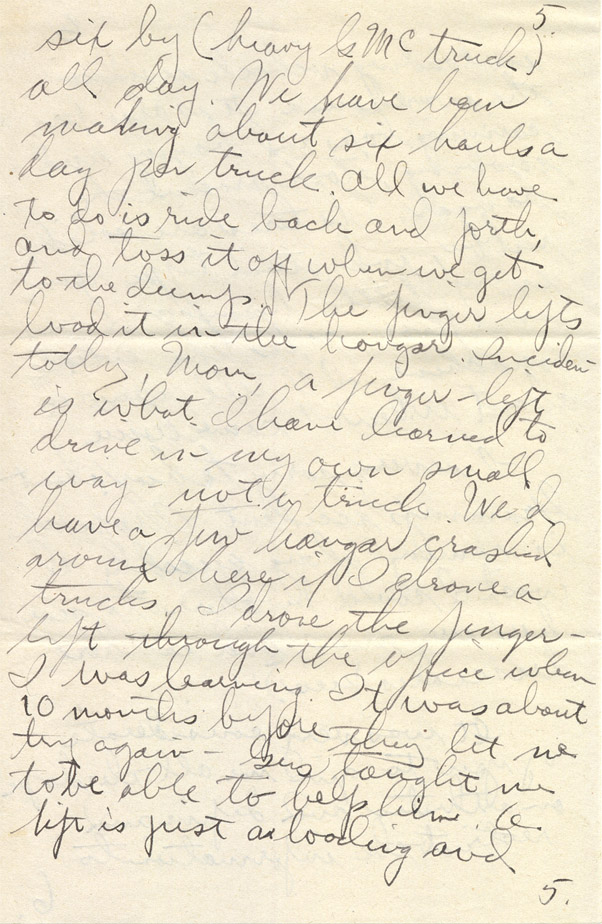 5.
six by (heavy GMC truck)
all day. We have been
making about six hauls a
day per truck. All we have
to do is ride back and forth,
and toss it off when we get
to the dump. The finger lifts
load it in the hangar. Inciden-
tally, Mom, a finger-lift
is what I have learned to
drive in my own small
way - not a truck. We'd
have a few hangar crashed
around here if I drove a
trucks. I drove the finger-
lift through the office when
I was learning. It was about
10 months before they let me
try again - Gus taught me
to be able to help him. a
lift is just a loading and
5.